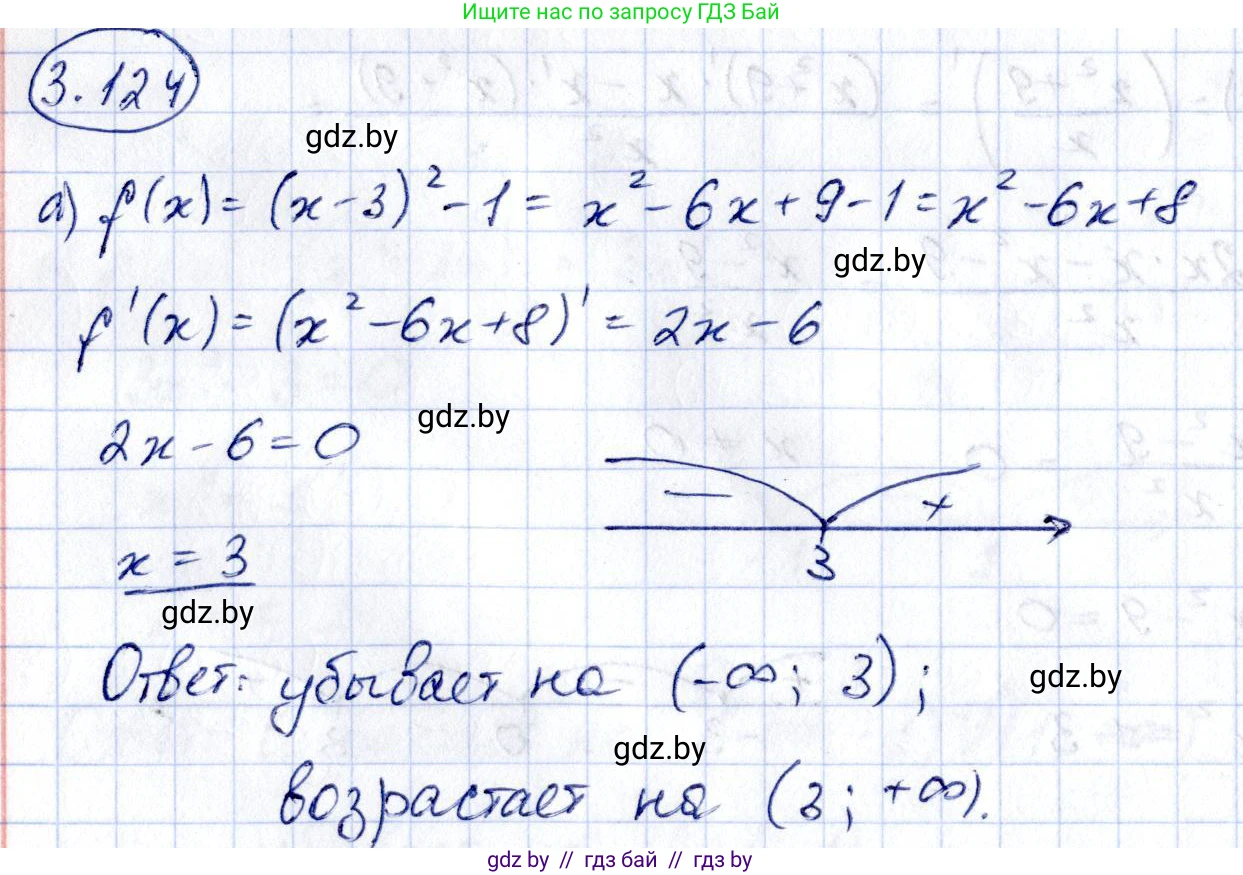 Ищите нас по запросу ГДЗ Бай
3.124
gdz.by
а) f(x) = (x-3)² - 1 = x² - 6x + 9 - 1 = x² - 6x + 8
gdz.by
f'(x) = (x² - 6x + 8)' = 2x - 6
2x - 6 = 0
gdz.by
− +
3
x = 3
gdz.by
Ответ: убывает на (-∞; 3);
gdz.by
gdz.by
возрастает на (3; +∞).
gdz by // гдз бай // гдз by